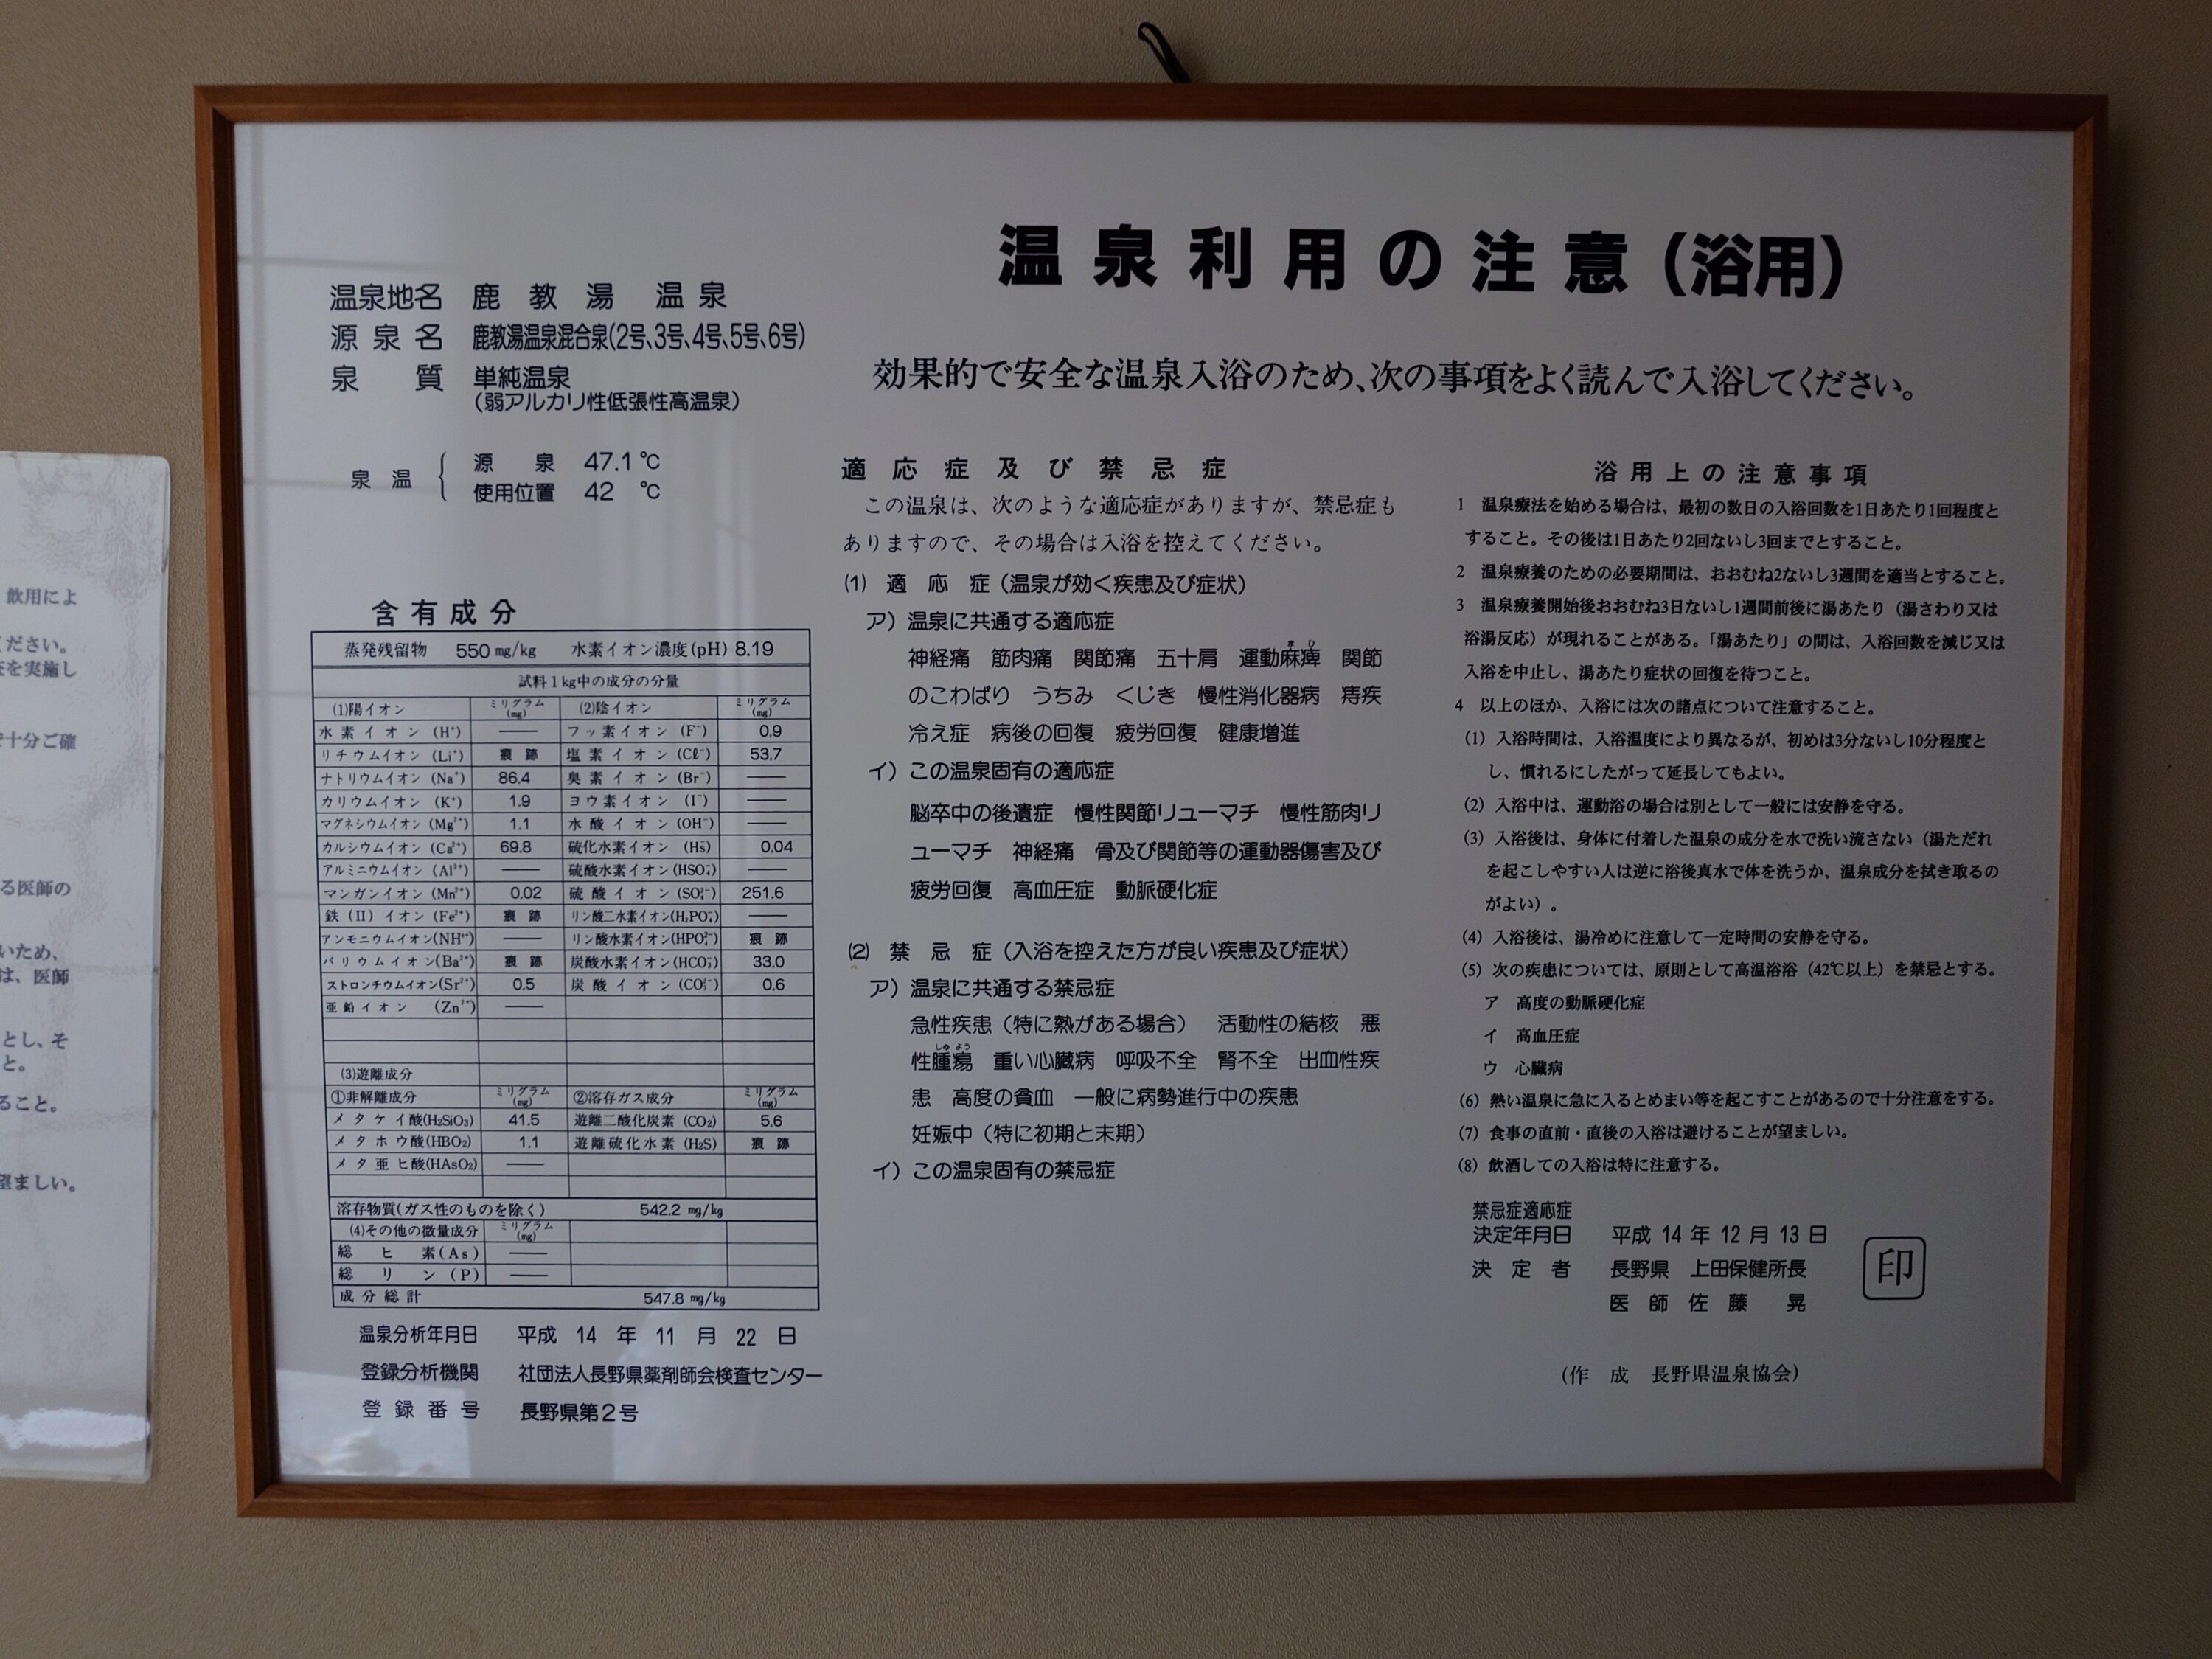 温泉利用の注意(浴用)
効果的で安全な温泉入浴のため、次の事項をよく読んで入浴してください。
温泉地名 鹿教湯 温泉
源泉名 鹿教湯温泉混合泉(2号、3号、4号、5号、6号)
泉質 単純温泉
(弱アルカリ性低張性高温泉)
泉温 源泉 47.1℃
使用位置 42 ℃
含有成分
蒸発残留物 550mg/kg 水素イオン濃度(pH) 8.19
試料1kg中の成分の分量
(1)陽イオン ミリグラム(mg) (2)陰イオン ミリグラム(mg)
水素イオン (H⁺) ―― フッ素イオン (F⁻) 0.9
リチウムイオン (Li⁺) 痕跡 塩素イオン (Cℓ⁻) 53.7
ナトリウムイオン (Na⁺) 86.4 臭素イオン (Br⁻) ――
カリウムイオン (K⁺) 1.9 ヨウ素イオン (I⁻) ――
マグネシウムイオン (Mg²⁺) 1.1 水酸イオン (OH⁻) ――
カルシウムイオン (Ca²⁺) 69.8 硫化水素イオン (HS⁻) 0.04
アルミニウムイオン (Al³⁺) ―― 硫酸水素イオン (HSO₄⁻) ――
マンガンイオン (Mn²⁺) 0.02 硫酸イオン (SO₄²⁻) 251.6
鉄(II)イオン (Fe²⁺) 痕跡 リン酸二水素イオン(H₂PO₄⁻) ――
アンモニウムイオン(NH⁴⁺) ―― リン酸水素イオン(HPO₄²⁻) 痕跡
バリウムイオン(Ba²⁺) 痕跡 炭酸水素イオン(HCO₃⁻) 33.0
ストロンチウムイオン(Sr²⁺) 0.5 炭酸イオン(CO₃²⁻) 0.6
亜鉛イオン (Zn²⁺) ――
(3)遊離成分
①非解離成分 ミリグラム(mg) ②溶存ガス成分 ミリグラム(mg)
メタケイ酸(H₂SiO₃) 41.5 遊離二酸化炭素 (CO₂) 5.6
メタホウ酸(HBO₂) 1.1 遊離硫化水素 (H₂S) 痕跡
メタ亜ヒ酸(HAsO₂) ――
溶存物質(ガス性のものを除く) 542.2 mg/kg
(4)その他の微量成分 ミリグラム(mg)
総ヒ素(As) ――
総リン(P) ――
成分総計 547.8 mg/kg
温泉分析年月日 平成 14 年 11 月 22 日
登録分析機関 社団法人長野県薬剤師会検査センター
登録番号 長野県第2号
適応症及び禁忌症
この温泉は、次のような適応症がありますが、禁忌症も
ありますので、その場合は入浴を控えてください。
(1) 適応症(温泉が効く疾患及び症状)
ア)温泉に共通する適応症
まひ
神経痛 筋肉痛 関節痛 五十肩 運動麻痺 関節
のこわばり うちみ くじき 慢性消化器病 痔疾
冷え症 病後の回復 疲労回復 健康増進
イ)この温泉固有の適応症
脳卒中の後遺症 慢性関節リューマチ 慢性筋肉リ
ューマチ 神経痛 骨及び関節等の運動器傷害及び
疲労回復 高血圧症 動脈硬化症
(2) 禁忌症(入浴を控えた方が良い疾患及び症状)
ア)温泉に共通する禁忌症
急性疾患(特に熱がある場合) 活動性の結核 悪
しゅよう
性腫瘍 重い心臓病 呼吸不全 腎不全 出血性疾
患 高度の貧血 一般に病勢進行中の疾患
妊娠中(特に初期と末期)
イ)この温泉固有の禁忌症
浴用上の注意事項
1 温泉療法を始める場合は、最初の数日の入浴回数を1日あたり1回程度と
すること。その後は1日あたり2回ないし3回までとすること。
2 温泉療養のための必要期間は、おおむね2ないし3週間を適当とすること。
3 温泉療養開始後おおむね3日ないし1週間前後に湯あたり(湯さわり又は
浴湯反応)が現れることがある。「湯あたり」の間は、入浴回数を減じ又は
入浴を中止し、湯あたり症状の回復を待つこと。
4 以上のほか、入浴には次の諸点について注意すること。
(1) 入浴時間は、入浴温度により異なるが、初めは3分ないし10分程度と
し、慣れるにしたがって延長してもよい。
(2) 入浴中は、運動浴の場合は別として一般には安静を守る。
(3) 入浴後は、身体に付着した温泉の成分を水で洗い流さない(湯ただれ
を起こしやすい人は逆に浴後真水で体を洗うか、温泉成分を拭き取るの
がよい)。
(4) 入浴後は、湯冷めに注意して一定時間の安静を守る。
(5) 次の疾患については、原則として高温浴浴(42℃以上)を禁忌とする。
ア 高度の動脈硬化症
イ 高血圧症
ウ 心臓病
(6) 熱い温泉に急に入るとめまい等を起こすことがあるので十分注意をする。
(7) 食事の直前・直後の入浴は避けることが望ましい。
(8) 飲酒しての入浴は特に注意する。
禁忌症適応症
決定年月日 平成 14 年 12 月 13 日
決定者 長野県 上田保健所長
医師 佐藤 晃
印
(作成 長野県温泉協会)
飲用によ
ください。
を実施し
で十分ご確
る医師の
いため、
は、医師
とし、そ
と。
ること。
望ましい。